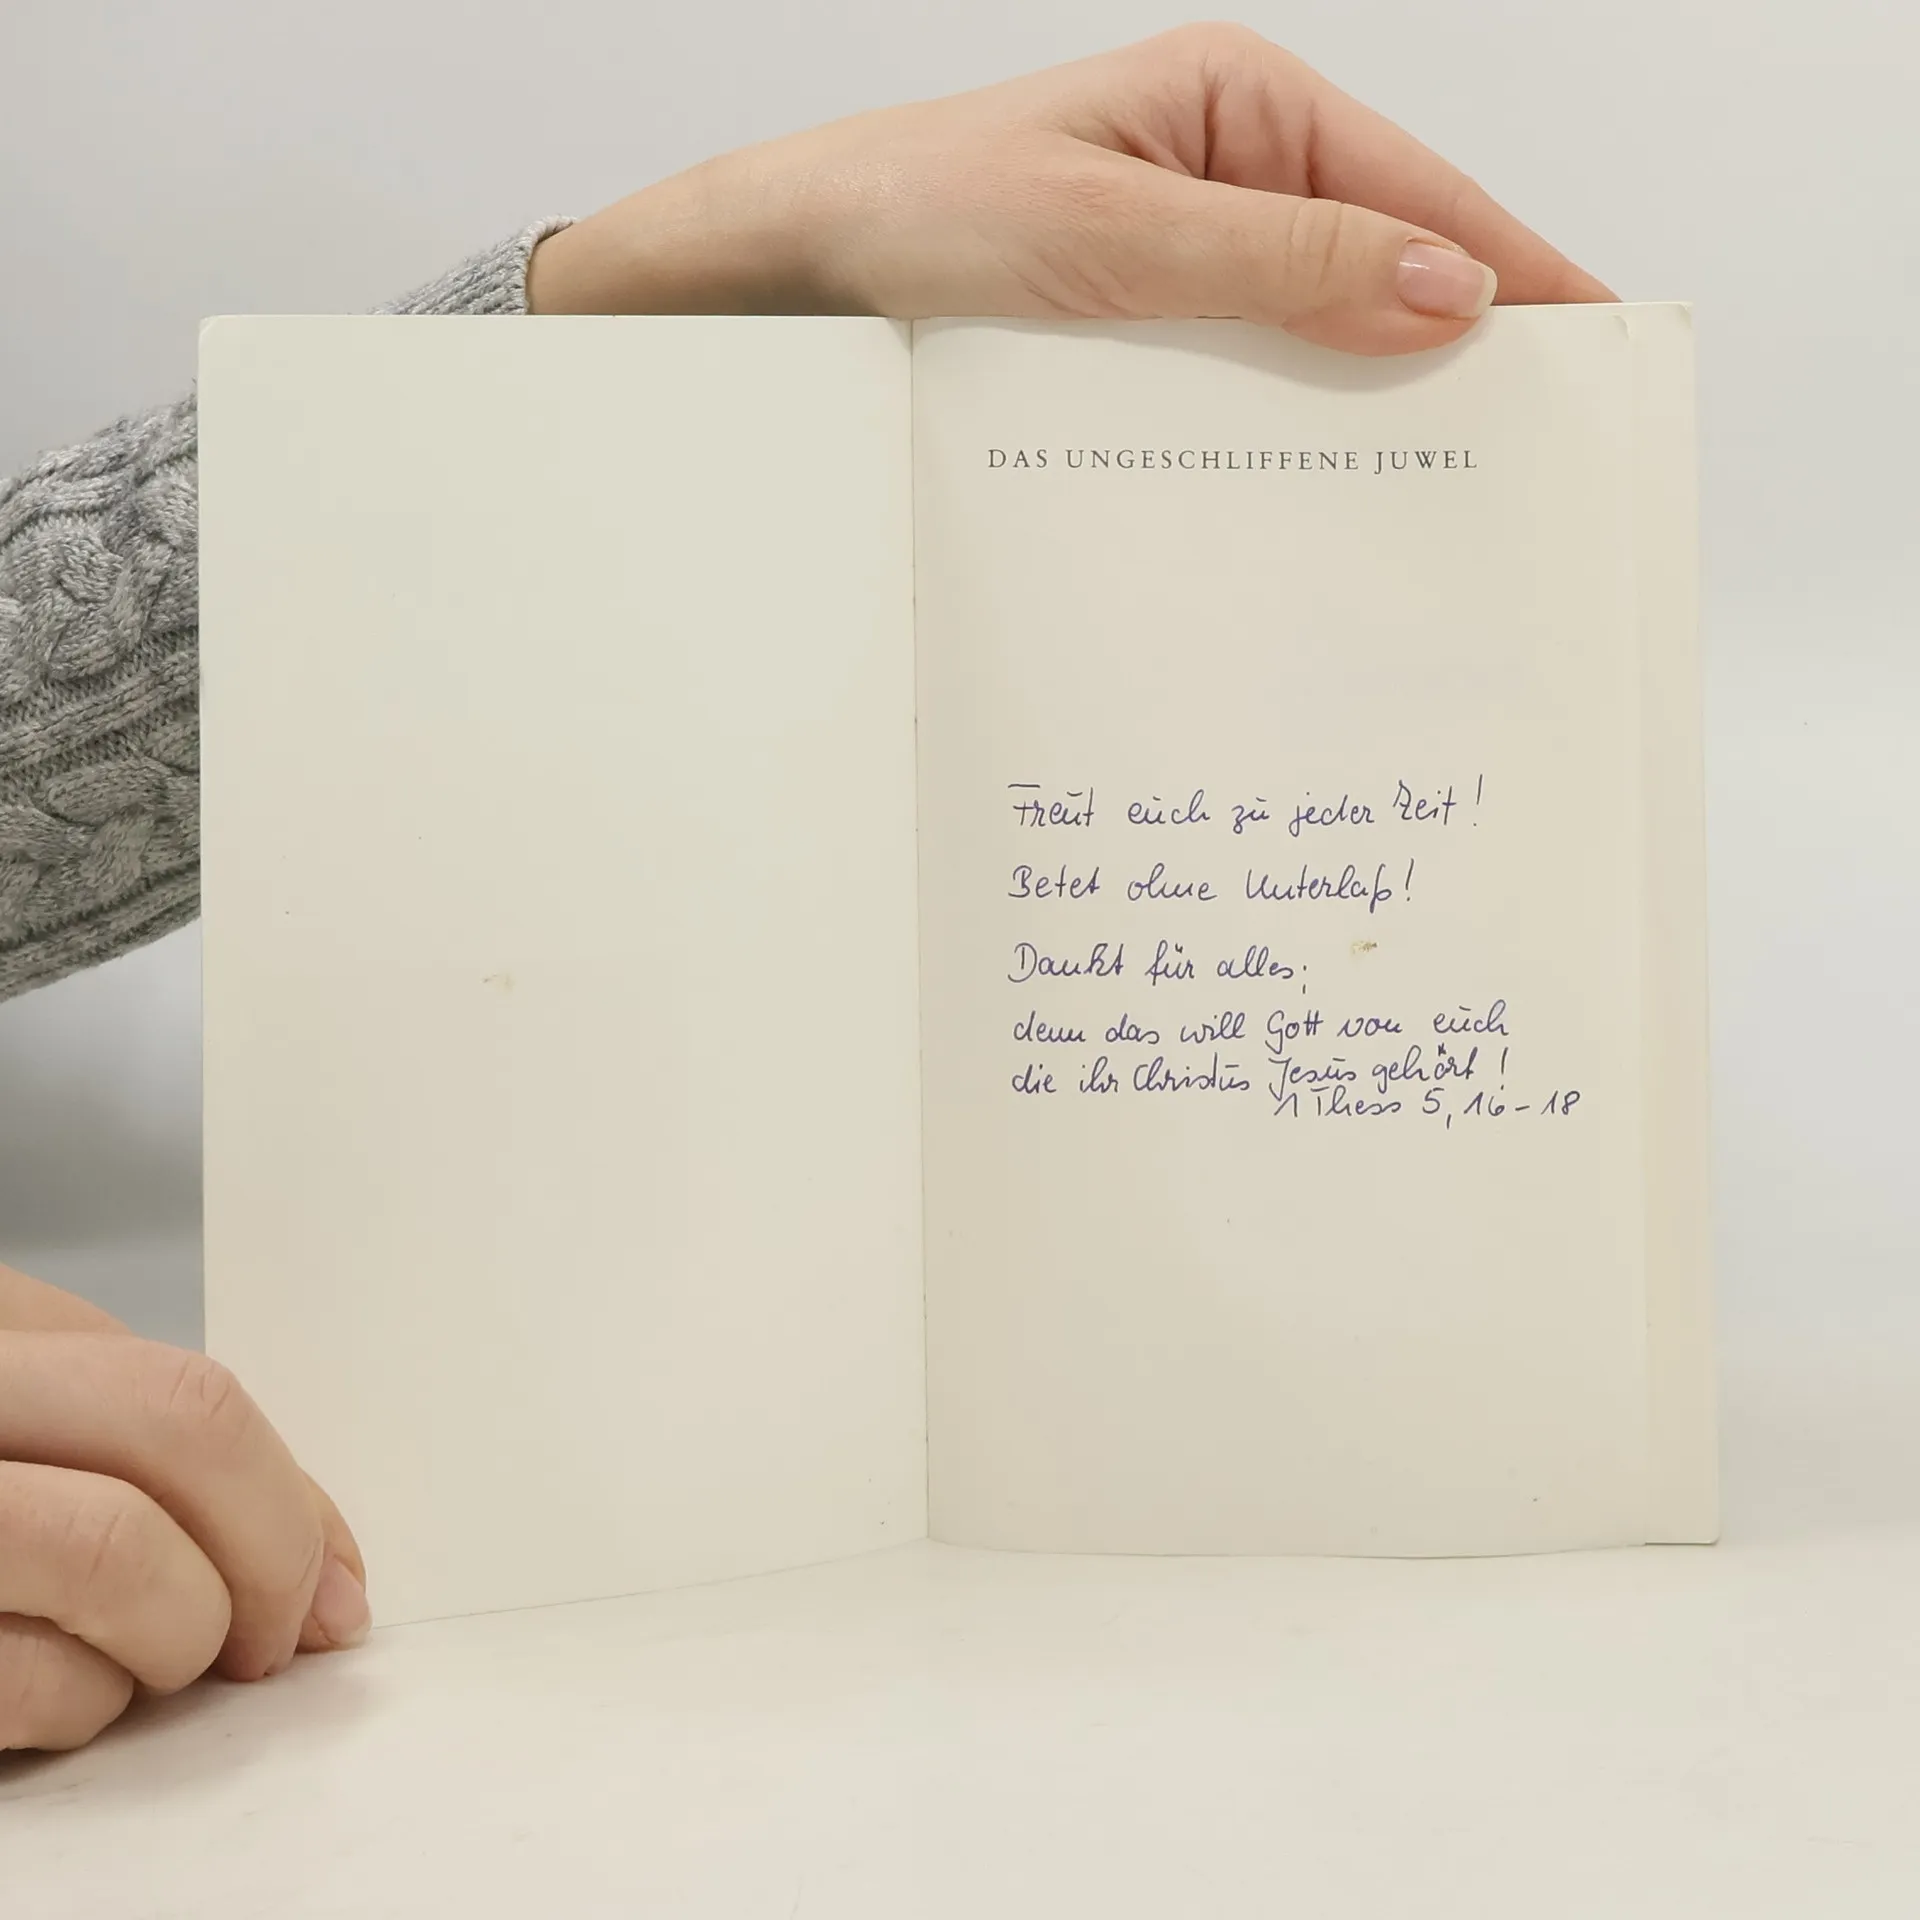 DAS UNGESCHLIFFENE JUWEL
Freut euch zu jeder Zeit!
Betet ohne Unterlaß!
Dankt für alles;
denn das will Gott von euch
die ihr Christus Jesus gehört!
1 Thess 5, 16-18